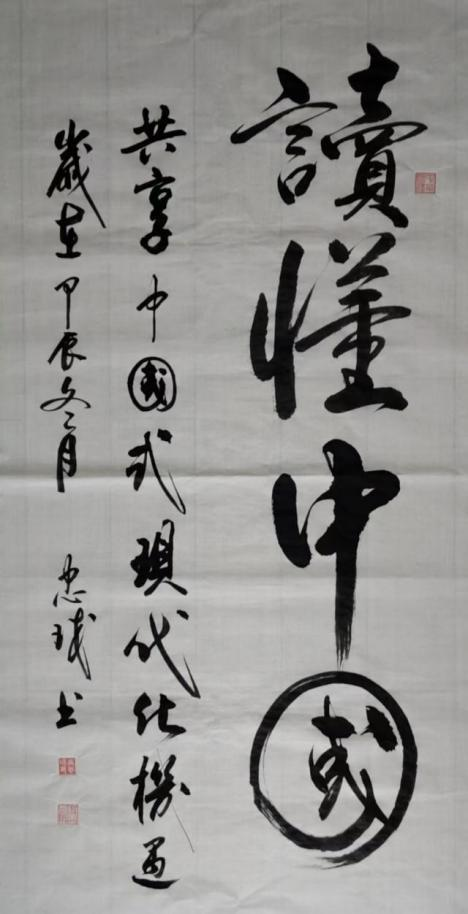 讀懂中國
共享中國式現代化機遇
歲在甲辰冬月 忠琖書